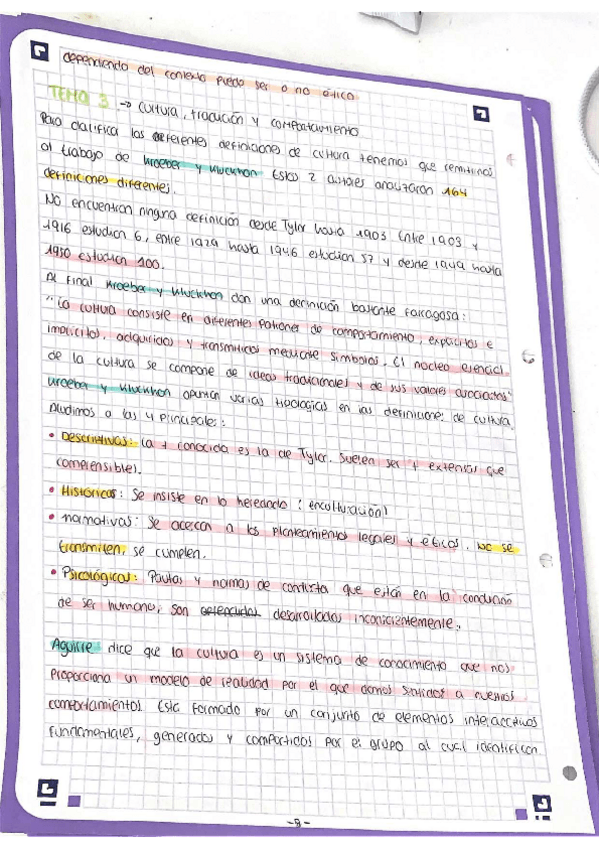 dependiendo del contexto puede ser o no ético
TEMA 3 -> cultura, tradición y comportamiento
Para clarifica las diferentes definiciones de cultura tenemos que remitirnos
al trabajo de Kroeber y Kluckhon Estos 2 autores analizaron 164
definiciones diferentes.
NO encuentran ninguna definición desde Tylor hasta 1903 Entre 1903 y
1916 estudian 6, entre 1929 hasta 1946 estudian 57 y desde hasta
1950 estudian 100.
Al final Kroeber y Kluckhon dan una definición bastante farragosa:
"La cultura consiste en diferentes patrones de comportamiento, explícitos e
implícitos, adquiridos y transmitidos mediante símbolos. El núcleo esencial
de la cultura se compone de ideas tradicionales y de sus valores asociados"
Kroeber y Kluckhon apuntan varias tipologías en las definiciones de cultura.
Aludimos a las 4 principales:
• Descriptivas: la + conocida es la de Tylor. Suelen ser + extensas que
comprensibles.
• Históricas: Se insiste en lo heredado (enculturación)
• normativas: Se acercan a los planteamientos legales y éticos. No se
transmiten, se cumplen.
• Psicológicas: Pautas y normas de conducta que están en la condición
de ser humano, son desarrolladas inconscientemente.
Aguirre dice que la cultura es un sistema de conocimiento que nos
proporciona un modelo de realidad por el que damos sentidos a nuestros
comportamientos. Está formado por un conjunto de elementos interactivos
fundamentales, generados y compartidos por el grupo al cual identifican
-8-